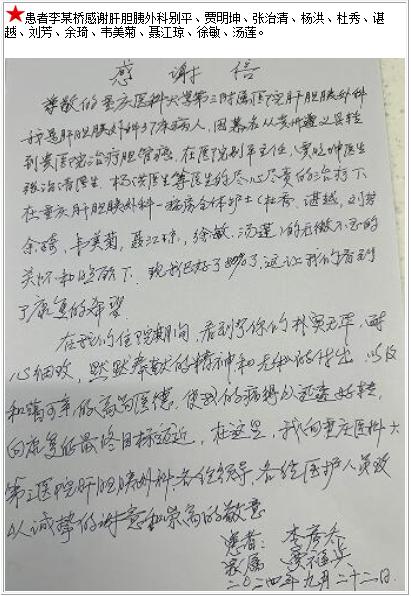 ★患者李某桥感谢肝胆胰外科别平、贾明坤、张治清、杨洪、杜秀、谌
越、刘芳、余琦、韦美菊、聂江琼、徐敏、汤莲。
感谢信
尊敬的重庆医科大学第三附属医院肝胆胰外科
我是肝胆胰外科37床病人，因慕名从贵州遵义县转
到贵医院治疗胆管癌，在医院别平主任，贾明坤医生
张治清医生，杨洪医生等医生的尽心尽责的治疗下
在重庆肝胆胰外科一病房全体护士（杜秀，谌越，刘芳
余琦，韦美菊，聂江琼，徐敏，汤莲）的无微不至的
关怀和照顾下，现我已好了80%了，这让我们看到
了康复的希望
在我的住院期间，看到了你们朴实无华，耐
心细致，默默奉献的精神和无私的付出，以及
和蔼可亲的高尚医德，使我的病得以迅速好转，
向康复的最终目标迈近，在这里，我向重庆医科大
第三医院肝胆胰外科各位领导，各位医护人员致
以诚挚的谢意和崇高的敬意
患者：李
家属
二〇二四年九月二十二日